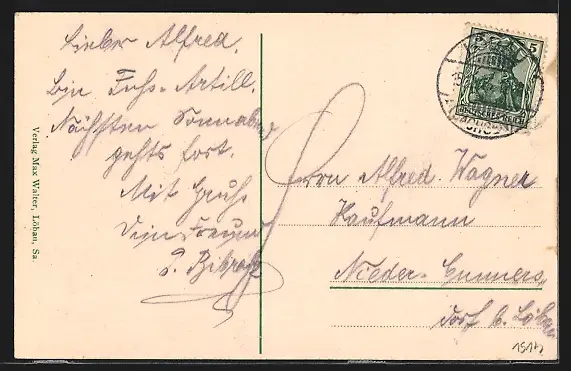 Lieber Alfred.
Bin Fuß-Artill.
Nächsten Sonnabend
gehts fort.
Mit Gruß
Dein Freund
Herrn Alfred Wagner
Kaufmann
Nieder-Cunners
dorf b. Löbau
Verlag Max Walter, Löbau, Sa.
5
DEUTSCHES REICH
1517z